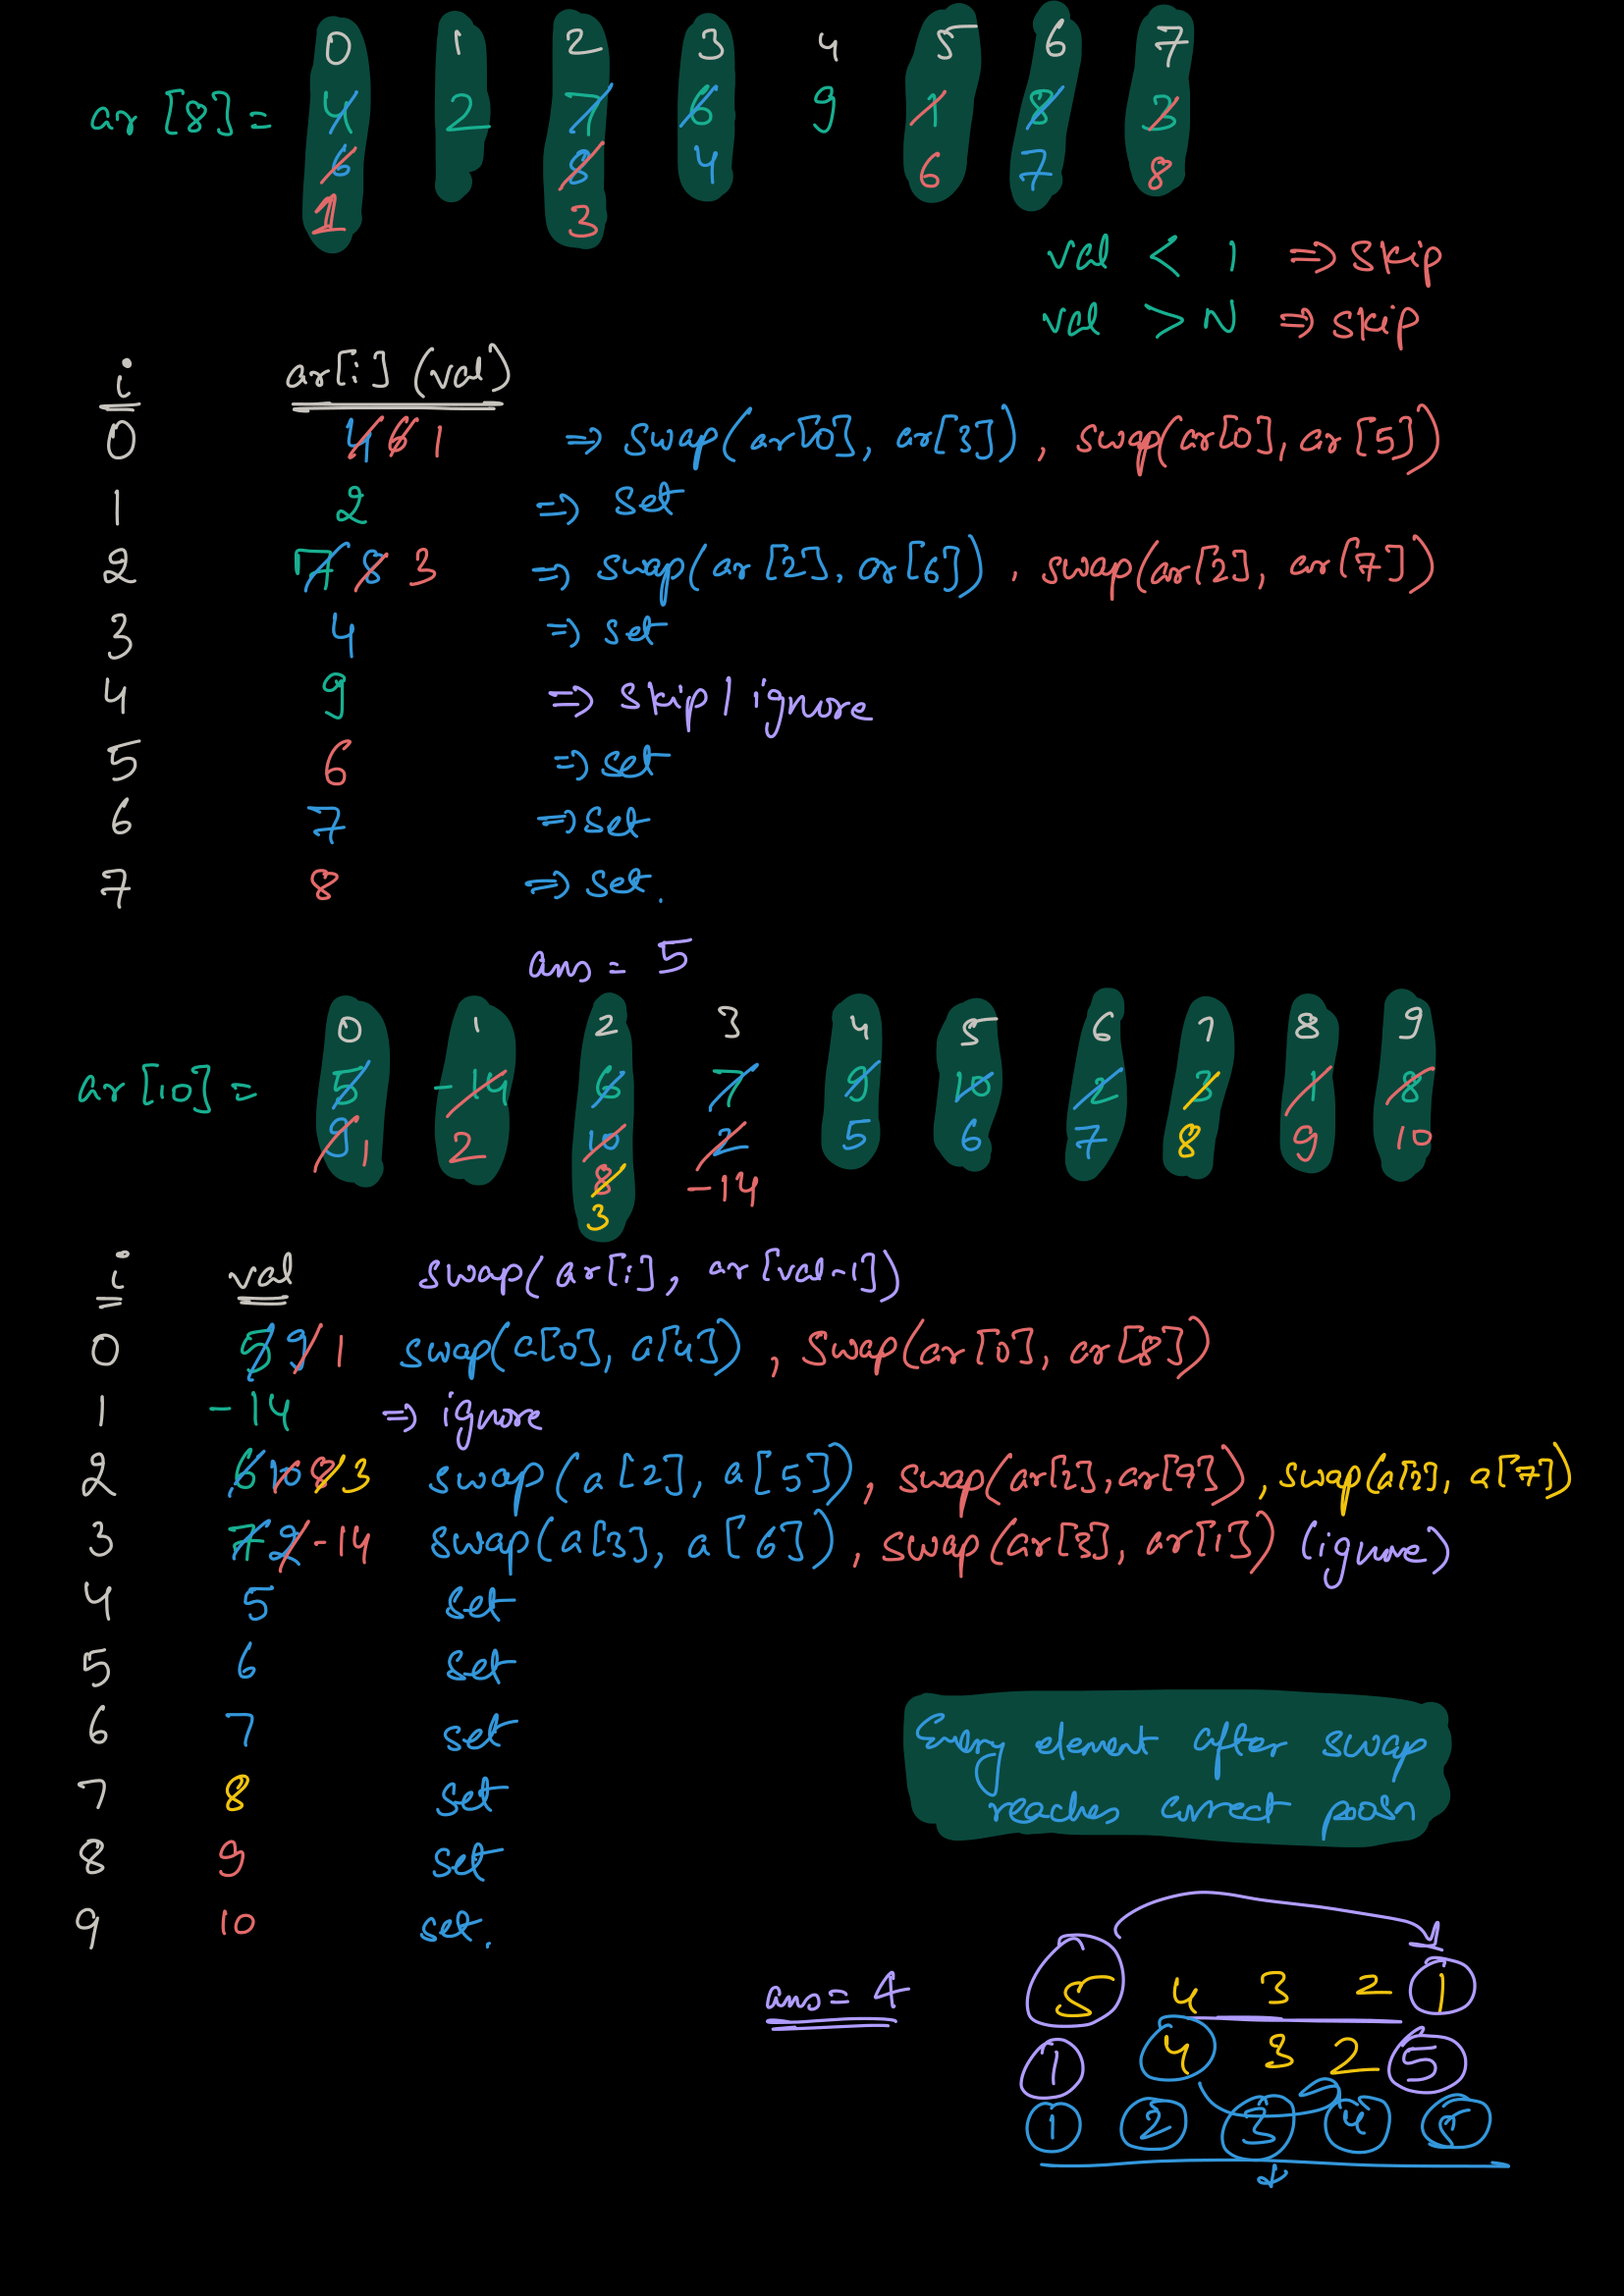 0 1 2 3 4 5 6 7
ar [8] = 4 2 7 6 9 1 8 3
6 8 4 6 7 8
1 3
val < 1 => skip
val > N => skip
i ar[i] (val)
0 4 6 1 => swap(ar[0], ar[3]), swap(ar[0], ar[5])
1 2 => set
2 7 8 3 => swap(ar[2], ar[6]), swap(ar[2], ar[7])
3 4 => set
4 9 => skip / ignore
5 6 => set
6 7 => set
7 8 => set.
ans = 5
0 1 2 3 4 5 6 7 8 9
ar [10] = 5 -14 6 7 9 10 2 3 1 8
9 1 2 10 2 5 6 7 8 9 10
8 -14
3
i val swap(ar[i], ar[val-1])
0 5 9 1 swap(a[0], a[4]), swap(ar[0], ar[8])
1 -14 => ignore
2 6 10 8 3 swap(a[2], a[5]), swap(ar[2], ar[9]), swap(a[2], a[7])
3 7 2 -14 swap(a[3], a[6]), swap(ar[3], ar[1]) (ignore)
4 5 set
5 6 set
6 7 set
7 8 set
8 9 set
9 10 set.
Every element after swap
reaches correct posn
ans = 4
5 4 3 2 1
1 4 3 2 5
1 2 3 4 5